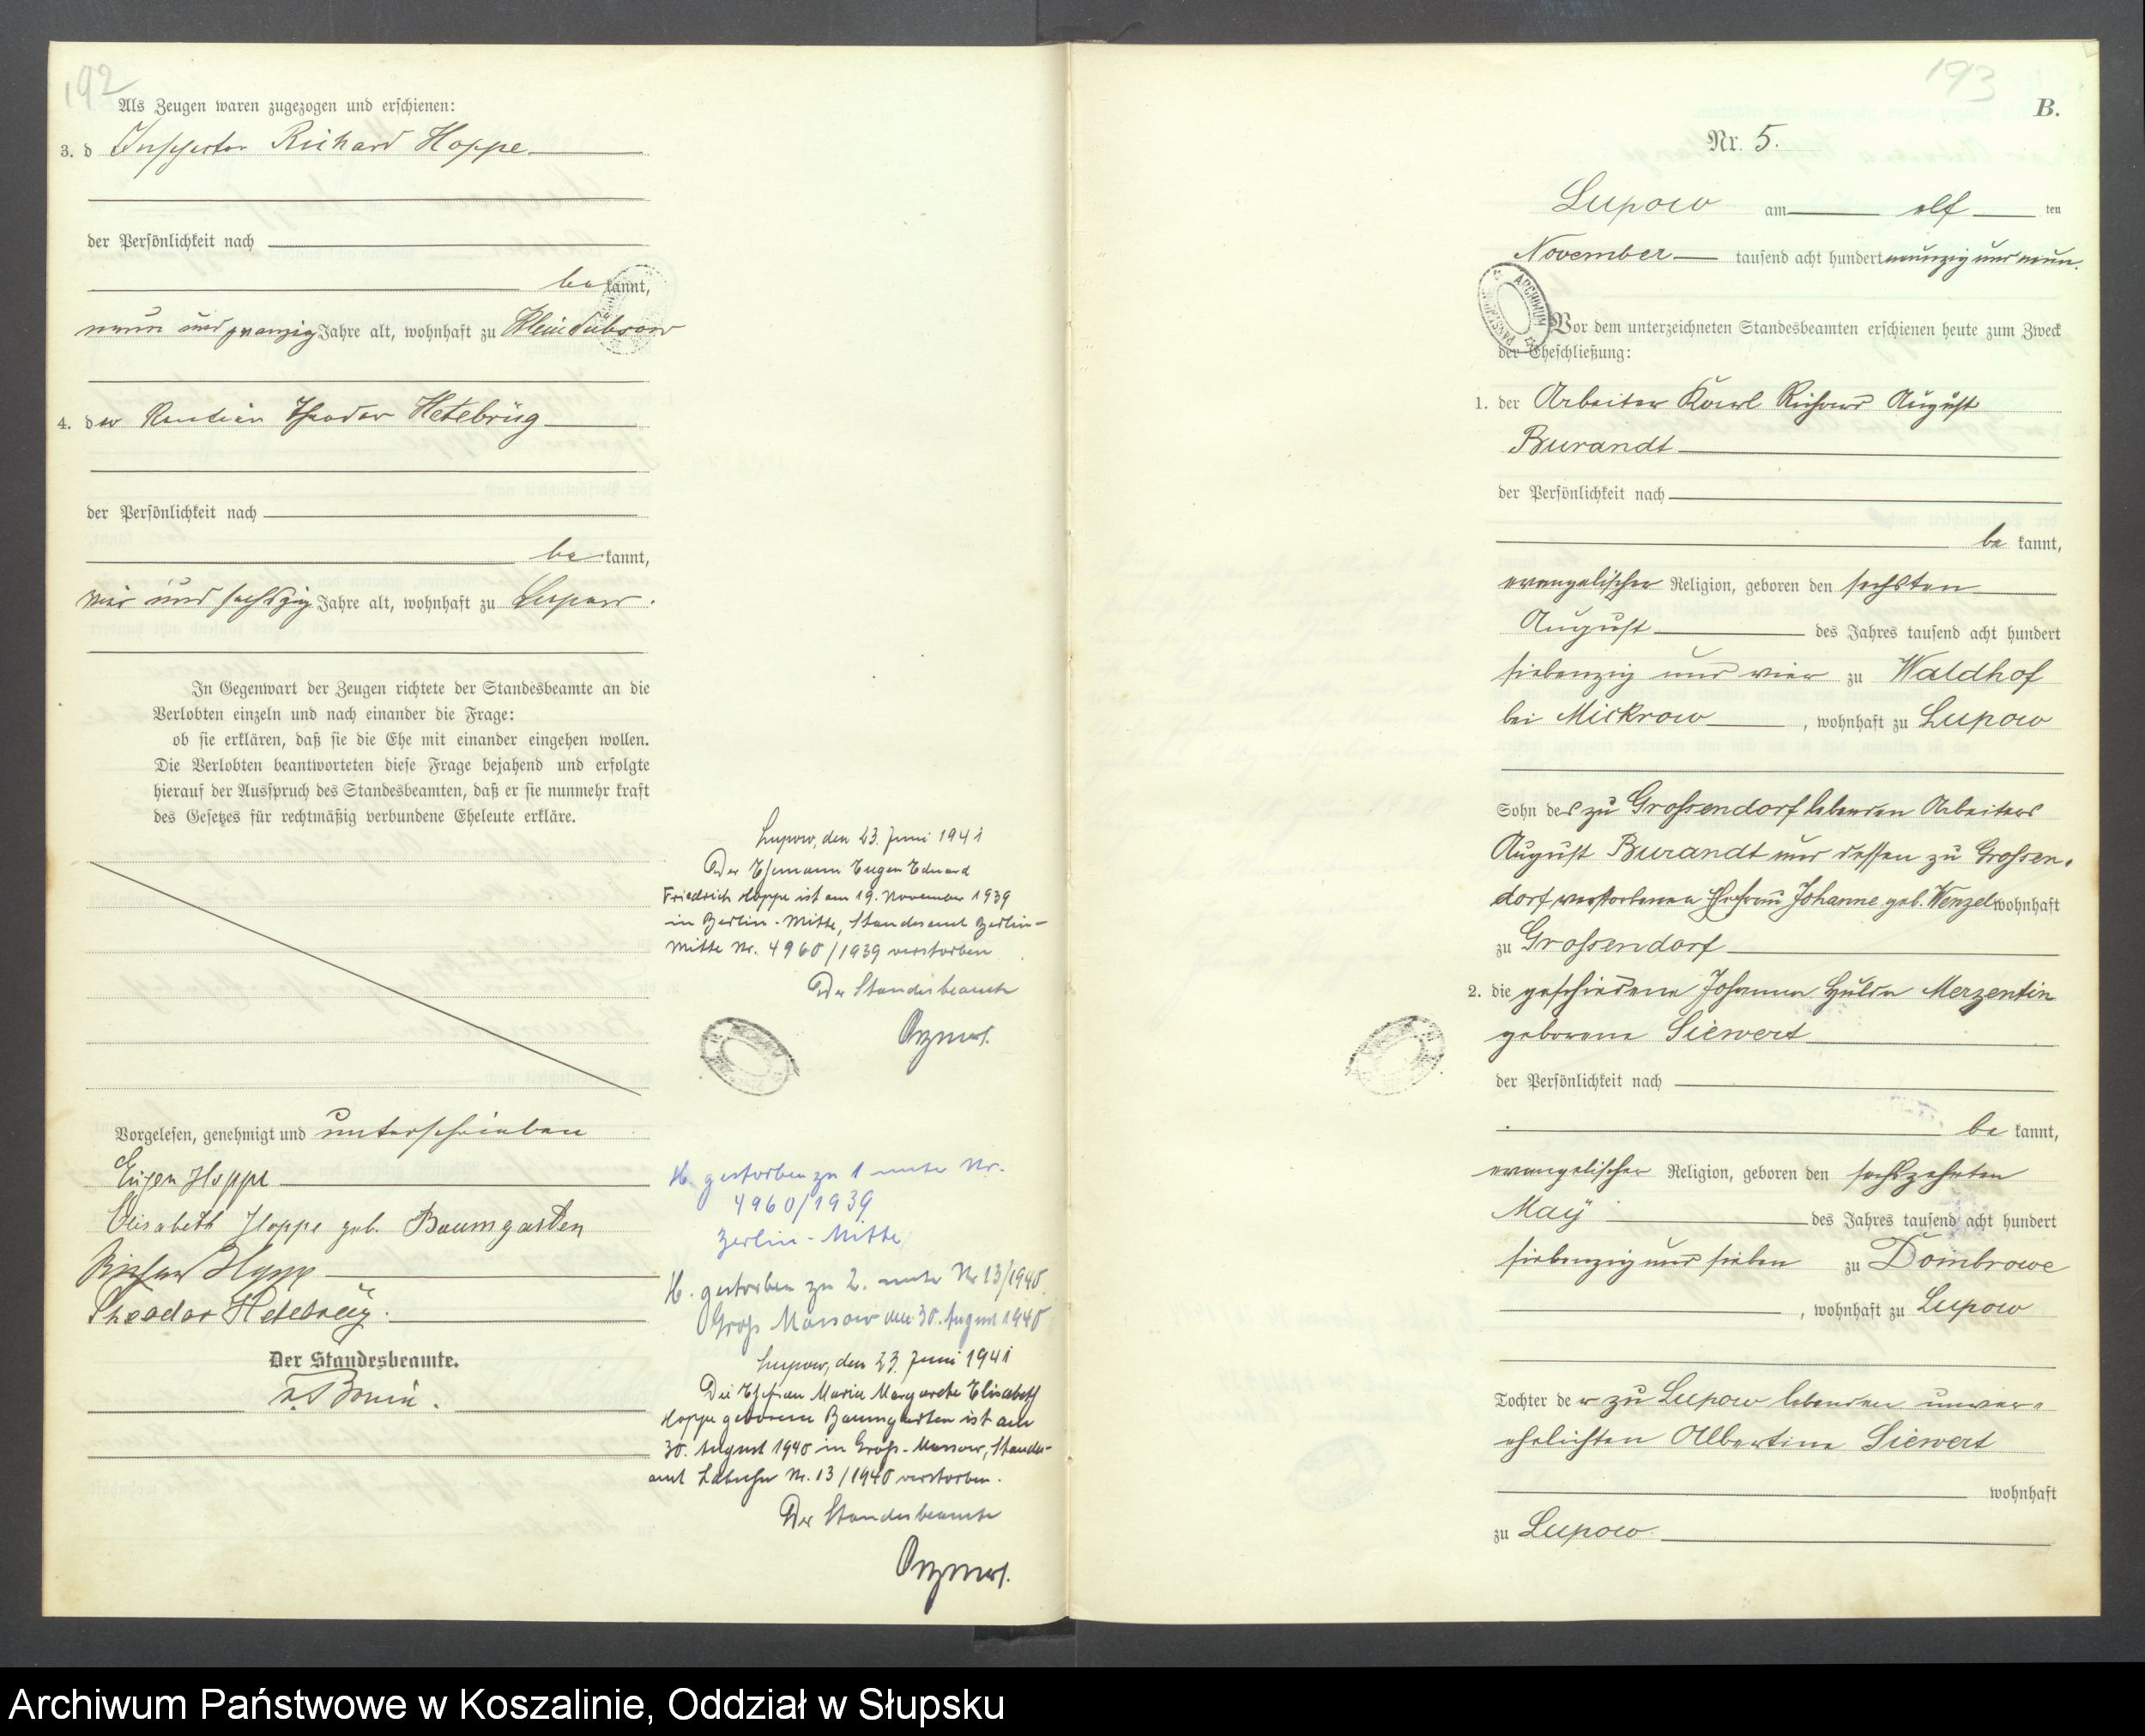 192
Als Zeugen waren zugezogen und erschienen:
3. d Inspector Richard Hoppe
der Persönlichkeit nach
be kannt,
neun und zwanzig Jahre alt, wohnhaft zu Klein Dübsow
4. der Rentier Theodor Hetebrüg
der Persönlichkeit nach
be kannt,
vier und sechszig Jahre alt, wohnhaft zu Lupow.
In Gegenwart der Zeugen richtete der Standesbeamte an die
Verlobten einzeln und nach einander die Frage:
ob sie erklären, daß sie die Ehe mit einander eingehen wollen.
Die Verlobten beantworteten diese Frage bejahend und erfolgte
hierauf der Ausspruch des Standesbeamten, daß er sie nunmehr kraft
des Gesetzes für rechtmäßig verbundene Eheleute erkläre.
Vorgelesen, genehmigt und unterschrieben
Eugen Hoppe
Elisabeth Hoppe geb. Baumgarten
Richard Hoppe
Theodor Hetebrüg.
Der Standesbeamte.
v. Bonin.
Lupow, den 23. Juni 1941
Der Ehemann Eugen Eduard
Friedrich Hoppe ist am 19. November 1939
in Berlin-Mitte, Standesamt Berlin-
Mitte Nr. 4960/1939 verstorben
Der Standesbeamte
H. gestorben zu 1 unter Nr.
4960/1939
Berlin-Mitte
H. gestorben zu 2. unter Nr 13/1940.
Groß Massow den 30. August 1940
Lupow, den 23. Juni 1941
Die Ehefrau Maria Margarete Elisabeth
Hoppe geborene Baumgarten ist am
30. August 1940 in Groß-Massow, Standes-
amt Labuhn Nr. 13/1940 verstorben.
Der Standesbeamte
193
B.
Nr. 5.
Lupow am elf ten
November tausend acht hundert neunzig und neun.
ARCHIWUM
Vor dem unterzeichneten Standesbeamten erschienen heute zum Zweck
der Eheschließung:
1. der Arbeiter Karl Richard August
Burandt
der Persönlichkeit nach
be kannt,
evangelischer Religion, geboren den sechsten
August des Jahres tausend acht hundert
siebenzig und vier zu Waldhof
bei Mickrow, wohnhaft zu Lupow
Sohn des zu Grossendorf lebenden Arbeiters
August Burandt und dessen zu Grossen-
dorf verstorbenen Ehefrau Johanne geb. Wenzel wohnhaft
zu Grossendorf
2. die geschiedene Johanna Hulda Merzentin
geborene Siewert
der Persönlichkeit nach
be kannt,
evangelischer Religion, geboren den sechszehnten
May des Jahres tausend acht hundert
siebenzig und sieben zu Dombrowe
, wohnhaft zu Lupow
Tochter der zu Lupow lebenden unver-
ehelichten Albertine Siewert
wohnhaft
zu Lupow
Archiwum Państwowe w Koszalinie, Oddział w Słupsku